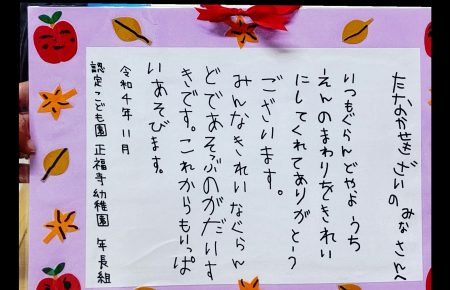 たなおかせきざいの みなさんへ
いつもぐらんどやようち
えんのまわりをきれい
にしてくれてありがとう
ございます。
みんなきれいなぐらん
どであそぶのがだいす
きです。これからもいっぱ
いあそびます。
令和4年11月
認定こども園 正福寺幼稚園 年長組